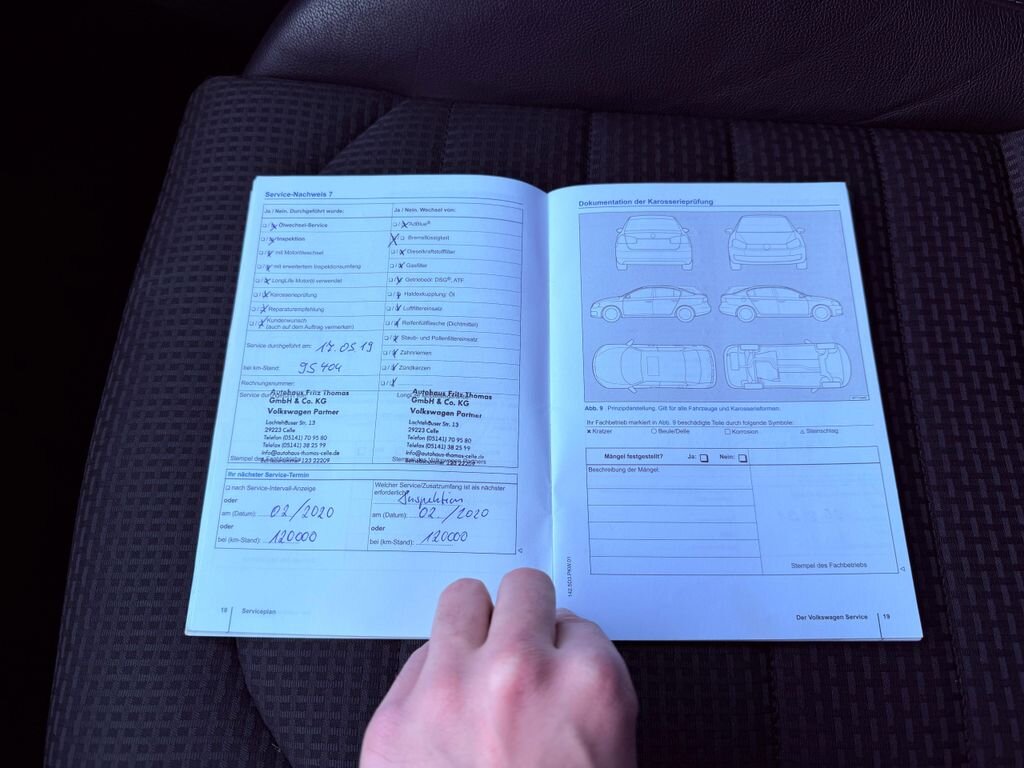 Service-Nachweis 7
Ja / Nein. Durchgeführt wurde:
Ölwechsel-Service
Inspektion
mit Motorölwechsel
mit erweitertem Inspektionsumfang
LongLife Motoröl verwendet
Karosserieprüfung
Reparaturempfehlung
Kundenwunsch
(auch auf dem Auftrag vermerken)
Service durchgeführt am: 17.05.19
bei km-Stand: 95404
Rechnungsnummer:
Ja / Nein. Wechsel von:
AdBlue®
Bremsflüssigkeit
Dieselkraftstofffilter
Gasfilter
Getriebeöl: DSG®, ATF
Haldexkupplung: Öl
Luftfiltereinsatz
Reifenfüllflasche (Dichtmittel)
Staub- und Pollenfiltereinsatz
Zahnriemen
Zündkerzen
Autohaus Fritz Thomas
GmbH & Co. KG
Volkswagen Partner
Lachtehäuser Str. 13
29223 Celle
Telefon (05141) 70 95 80
Telefax (05141) 38 25 99
info@autohaus-thomas-celle.de
Betriebsnummer 123 22209
Autohaus Fritz Thomas
GmbH & Co. KG
Volkswagen Partner
Lachtehäuser Str. 13
29223 Celle
Telefon (05141) 70 95 80
Telefax (05141) 38 25 99
info@autohaus-thomas-celle.de
Betriebsnummer 123 22209
Ihr nächster Service-Termin
nach Service-Intervall-Anzeige
oder
am (Datum): 02/2020
oder
bei (km-Stand): 120000
Welcher Service/Zusatzumfang ist als nächster
erforderlich:
Inspektion
am (Datum): 02./2020
oder
bei (km-Stand): 120000
18 Serviceplan
Dokumentation der Karosserieprüfung
Abb. 9 Prinzipdarstellung. Gilt für alle Fahrzeuge und Karosserieformen.
Ihr Fachbetrieb markiert in Abb. 9 beschädigte Teile durch folgende Symbole:
× Kratzer ○ Beule/Delle □ Korrosion △ Steinschlag
Mängel festgestellt? Ja: Nein:
Beschreibung der Mängel:
Stempel des Fachbetriebs
142.5D3.PKW.01
Der Volkswagen Service 19